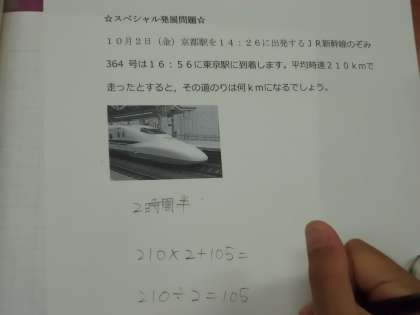 ☆スペシャル発展問題☆
１０月２日（金）京都駅を１４：２６に出発するＪＲ新幹線のぞみ
364 号は１６：５６に東京駅に到着します。平均時速２１０ｋｍで
走ったとすると，その道のりは何ｋｍになるでしょう。
2時間半
210×2+105=
210÷2=105